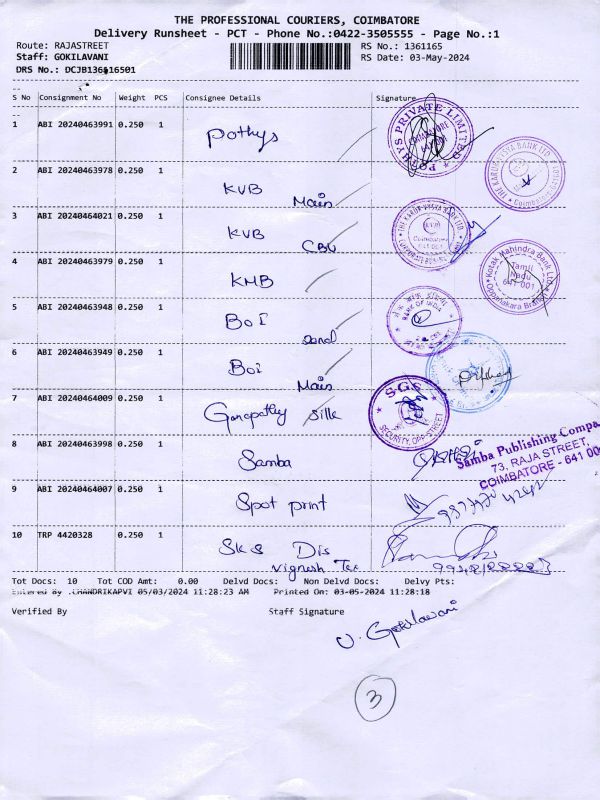 THE PROFESSIONAL COURIERS, COIMBATORE
Delivery Runsheet - PCT - Phone No.:0422-3505555 - Page No.:1
Route: RAJASTREET RS No.: 1361165
Staff: GOKILAVANI RS Date: 03-May-2024
DRS No.: DCJB136116501
S No Consignment No Weight PCS Consignee Details Signature
1 ABI 20240463991 0.250 1 Pothys
POTHYS PRIVATE LIMITED
2 ABI 20240463978 0.250 1 KVB Main
THE KARUR VYSYA BANK LTD
3 ABI 20240464021 0.250 1 KVB CBU
THE KARUR VYSYA BANK LTD
4 ABI 20240463979 0.250 1 KMB
Kotak Mahindra Bank Ltd
Tamil
Nadu
641-001
Oppanakara
5 ABI 20240463948 0.250 1 BOI
BANK OF INDIA
6 ABI 20240463949 0.250 1 BOI Main
7 ABI 20240464009 0.250 1 Ganapathy Silk
SGS
SECURITY, OPP. STREET
8 ABI 20240463998 0.250 1 Samba
Samba Publishing Compa
73, RAJA STREET,
COIMBATORE - 641 00
9 ABI 20240464007 0.250 1 Spot print
10 TRP 4420328 0.250 1 SKS Dis
Vignesh Tex
Tot Docs: 10 Tot COD Amt: 0.00 Delvd Docs: Non Delvd Docs: Delvy Pts:
Entered By .CHANDRIKAPVI 05/03/2024 11:28:23 AM Printed On: 03-05-2024 11:28:18
Verified By Staff Signature
V. Gokilavani
3